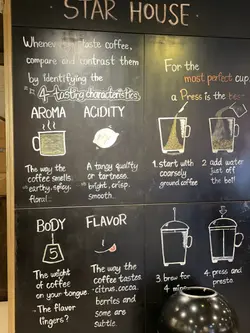 STAR HOUSE
Whenever you taste coffee,
compare and contrast them
by identifying the
4-tasting characteristics.
AROMA
The way the
coffee smells.
-earthy, spicy,
floral..
ACIDITY
A tangy quality
or tartness.
-bright, crisp,
smooth.
BODY
5
The weight
of coffee
on your tongue.
- The flavor
lingers?
FLAVOR
The way the
coffee tastes.
-citrus, cocoa,
berries and
some are
subtle.
For the
most perfect cup
a Press is the best
1. start with
coarsely
ground coffee
2. add water
just off
the boil
3. brew for
4 mins
4. press and
presto